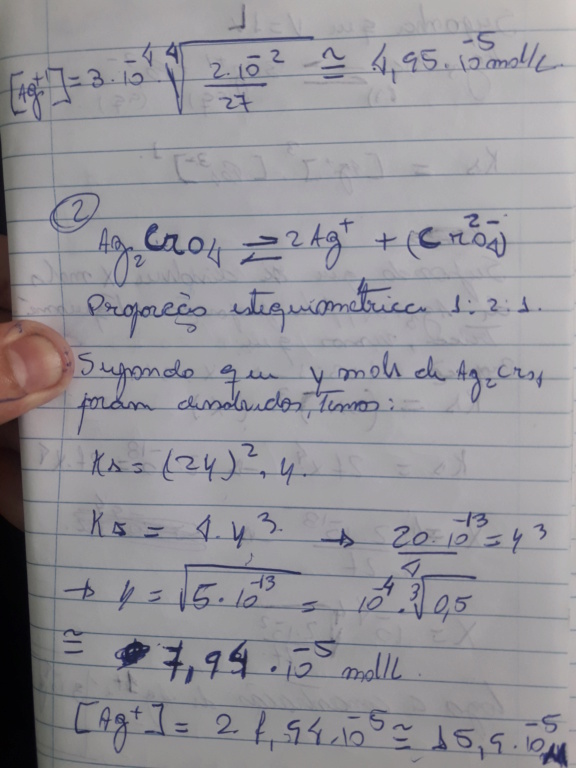 [Ag⁺¹] = 3·10⁻⁴ · ⁴√(2·10⁻²/27) ≅ 4,95·10⁻⁵ mol/L
②
Ag₂CrO₄ ⇌ 2Ag⁺ + (CrO₄²⁻)
Proporção estequiométrica 1:2:1.
Supondo que y mols de Ag₂CrO₄
foram dissolvidos, temos:
Ks = (2y)². y.
Ks = 4.y³. → 20·10⁻¹³/4 = y³
→ y = √(5·10⁻¹³) = 10⁻⁴·³√(0,5)
≅ 7,94·10⁻⁵ mol/L.
[Ag⁺] = 2 7,94·10⁻⁵ ≅ 15,9·10⁻⁵ M